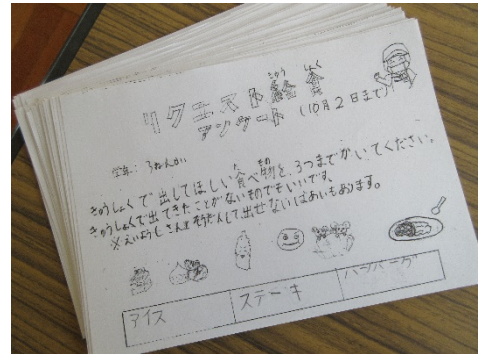 リクエスト給食
きゅう しょく
アンケート (10月2日まで)
学年: 3ねんせい
きゅうしょくで出してほしい食べ物を、3つまでかいてください。
た もの
きゅうしょくで出てきたことがないものでもいいです。
※えいようしさんとそうだんして出せないばあいもあります。
アイス ステーキ ハンバーグ